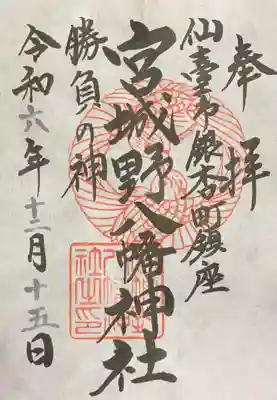 奉拝
仙臺市銀杏町鎮座
宮城野八幡神社
勝負の神
令和六年十二月十五日